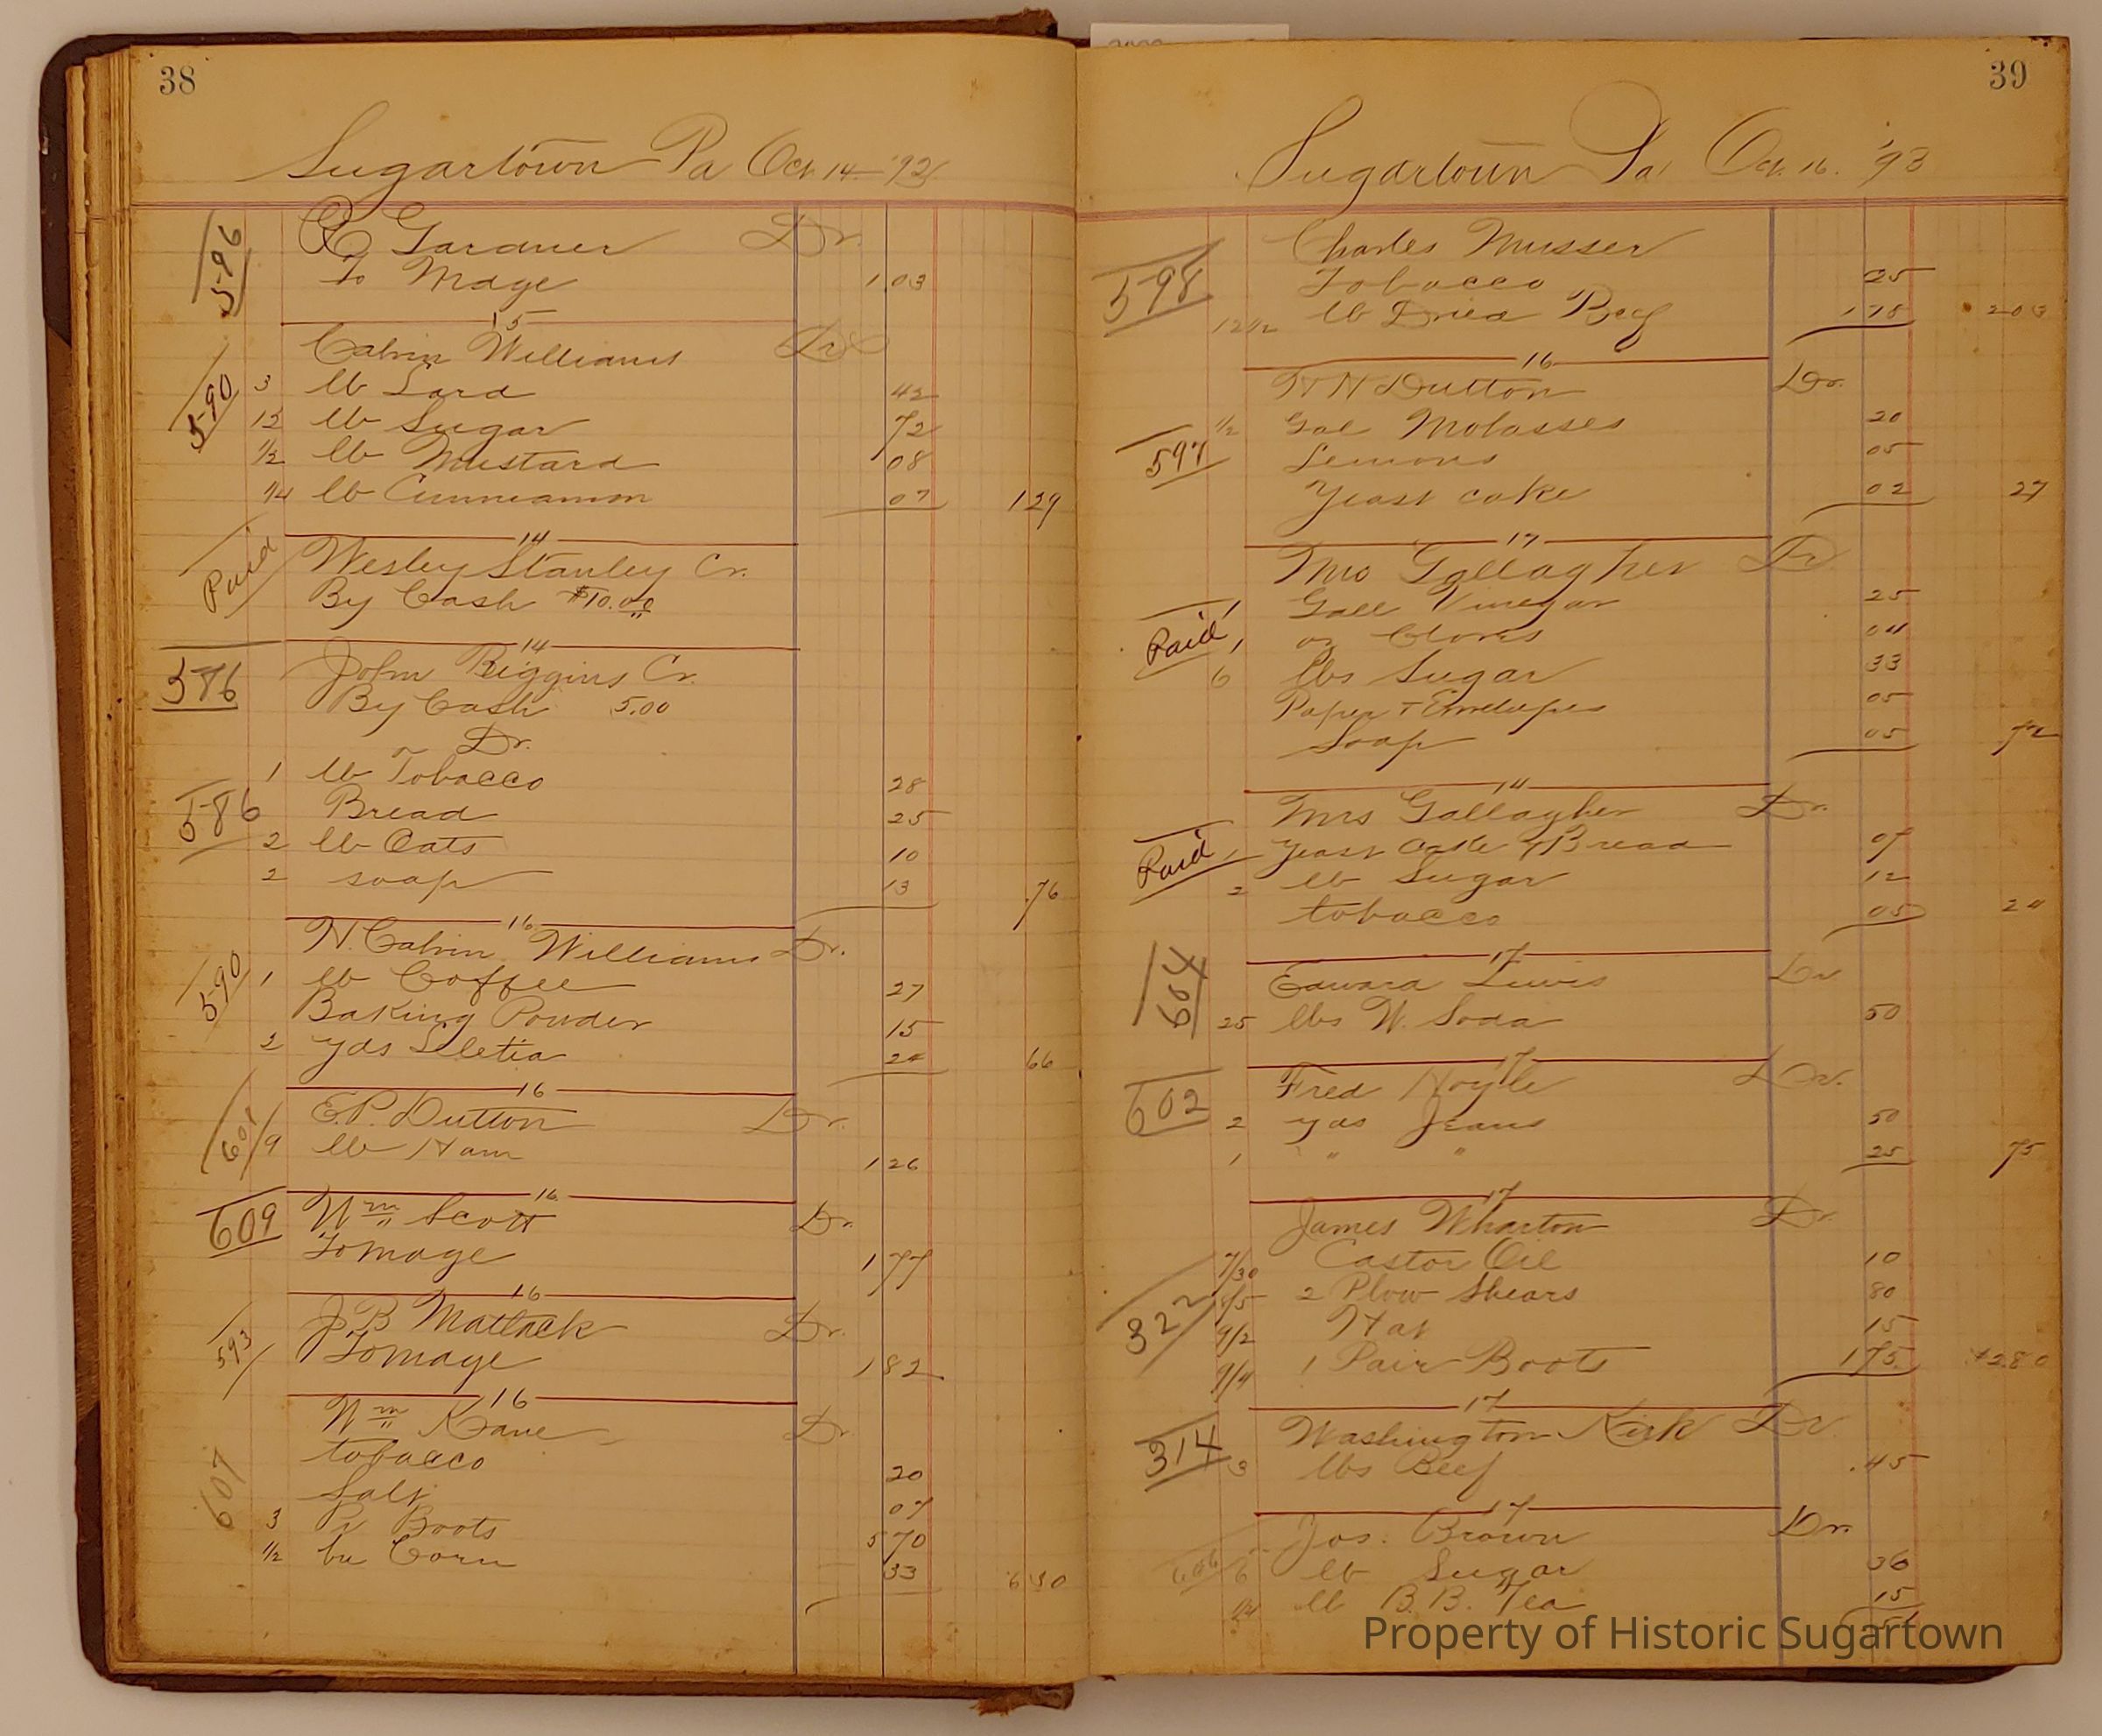 38
Sugartown Pa Oct 14 - '93
596
Gardner Dr.
To Mdge 1.03
15
590
Calvin Williams Dr
3 lb Lard 42
12 lb Sugar 72
1/2 lb Mustard 08
1/4 lb Cinneamon 07 129
14
Paid
Wesley Stanley Cr.
By Cash $10.00
14
586
John Biggins Cr.
By Cash 5.00
Dr.
1 lb Tobacco 28
586
Bread 25
2 lb Oats 10
2 soap 13 76
16
590
N. Calvin Williams Dr.
1 lb Coffee 27
Baking Powder 15
2 yds Siletia 24 66
16
601
E.P. Dutton Dr.
9 lb Ham 126
16
609
Wm Scott Dr.
To mdge 1 77
16
593
J B Matlack Dr.
To mdge 1 82
16
607
Wm Kane Dr
tobacco 20
Salt 07
3 Pr Boots 5 70
1/2 bu Corn 33 6 30
39
Sugartown Pa Oct. 16. '93
598
Charles Musser
Tobacco 25
12 1/2 lb Dried Beef 1 78 203
16
597
H H Dutton Dr.
1/2 Gal Molasses 20
Lemons 05
Yeast cake 02 27
17
Paid
Mrs Gallagher Dr
1 Gall Vinegar 25
1 oz Cloves 04
6 lbs Sugar 33
Paper + Envelopes 05
Soap 05 72
Paid
Mrs Gallagher Dr.
1 yeast cake & Bread 07
2 lb Sugar 12
tobacco 05 24
17
604
Edward Lewis Dr
25 lbs W. Soda 50
17
602
Fred Hoyle Dr.
2 yds Jeans 50
1 " " 25 75
17
322
James Wharton Dr
7/30 Castor Oil 10
8/5 2 Plow Shears 80
9/2 Hat 15
9/4 1 Pair Boots 175 $2.80
17
314
Washington Kirk Dr
3 lbs Beef .45
17
606
Jos. Brown Dr.
6 lb Sugar 36
1/4 lb B.B. Tea 15
51
Property of Historic Sugartown